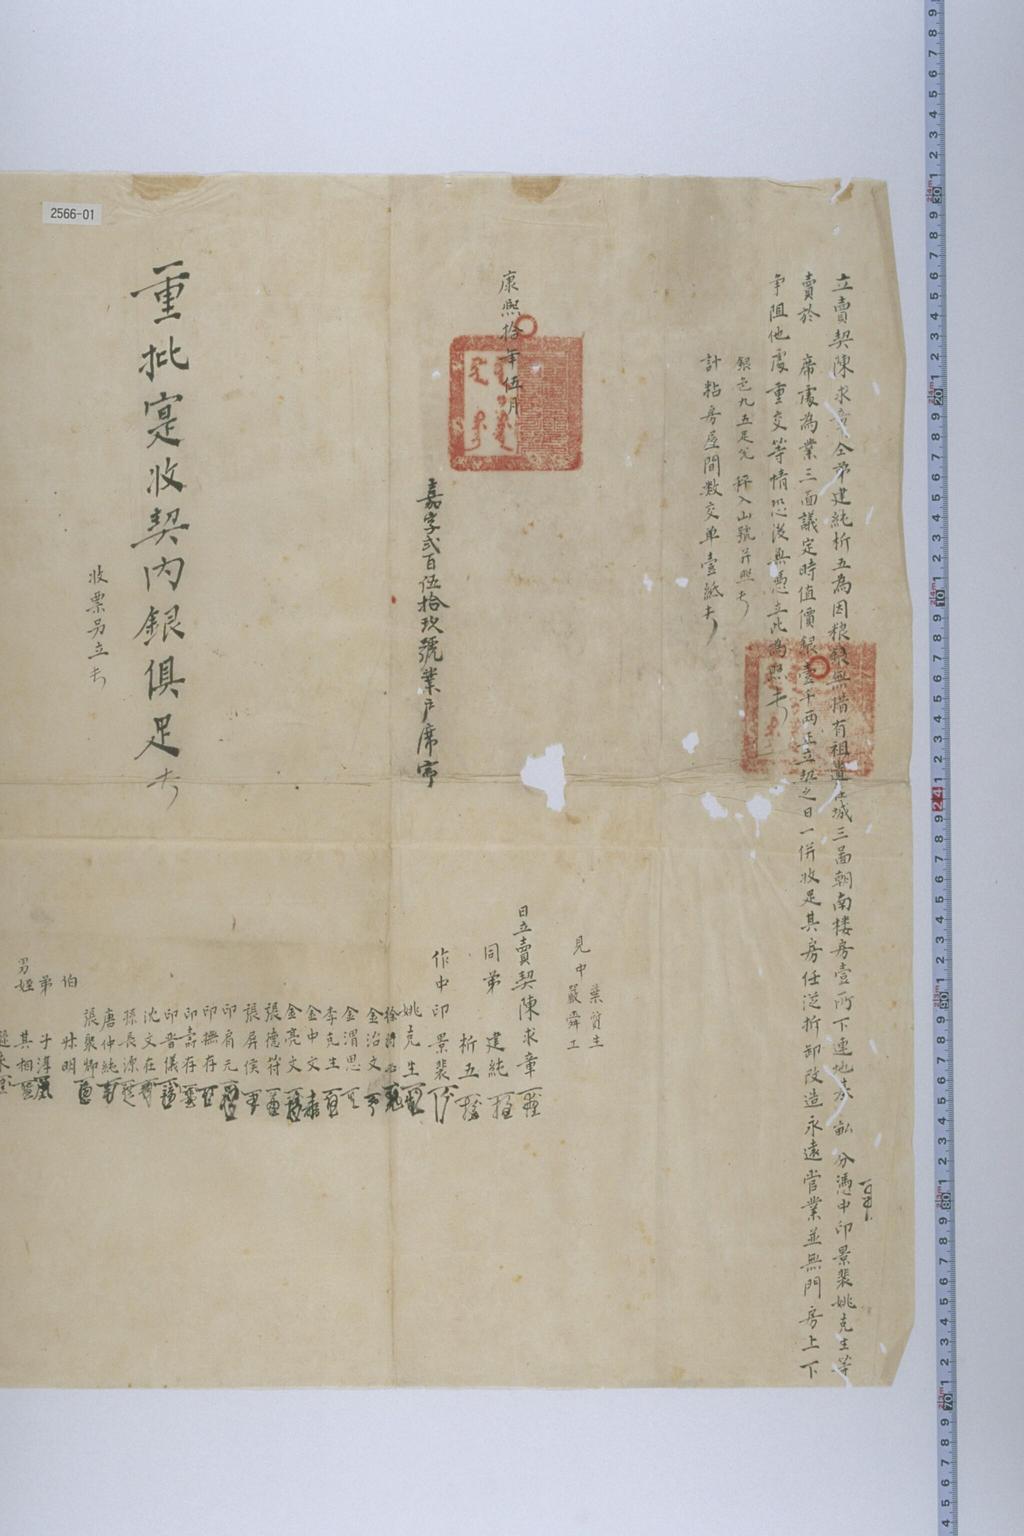 立賣契陳求章仝弟建純析五為因粮銀無措有祖遺在城三啚朝南楼房壹所下連地基 畝 分憑中印景裴姚克生等
賣於 席處為業三面議定時值價銀壹千兩正立契之日一併收足其房任從拆卸改造永遠営業並無門房上下
争阻他處重交等情恐後無憑立此為照
銀色九五足兌 秤入山號并照
計粘房屋間數交单壹紙
見中 葉質生
嚴舜工
康熙拾年伍月 日立賣契陳求章
同弟 建純
析五
作中印景裴
嘉字弍百伍拾玖號業戶席寧
姚克生
金治文
金渭思
李克生
金中文
金亮文
張德符
張屏侯
印有元
印撫存
印壽存
印晋儀
沈文在
孫長源
唐仲純
張聚卿
伯 牀明
弟 子淳
男姪 其相
一重批寔收契内銀俱足
收票另立
2566-01